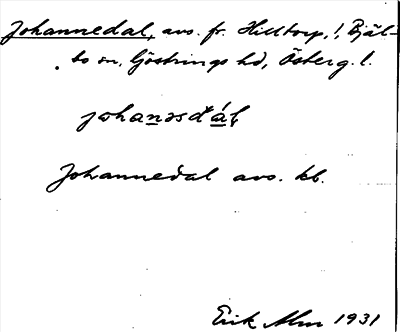 Johannedal, avs. fr. Hilltorp, !, Bjäl-
bo sn, Göstrings hd, Österg. l.
johanəsdál,
Johannedal avs. kb.
Erik Alm 1931